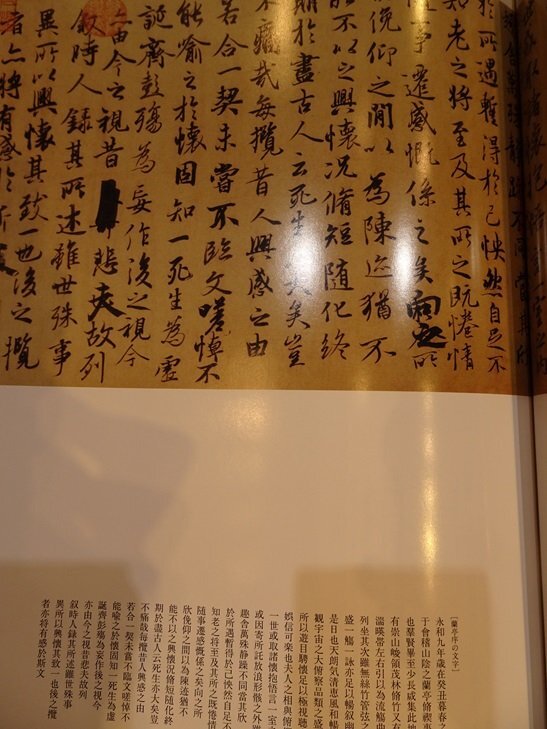 於所遇蹔得於己怏然自足不
知老之將至及其所之既惓情
事遷感慨係之矣向之所
俛仰之閒以為陳迹猶不
能不以之興懷況脩短隨化終
期於盡古人云死生亦大矣豈
不痛哉每攬昔人興感之由
若合一契未嘗不臨文嗟悼不
能喻之於懷固知一死生為虛
誕齊彭殤為妄作後之視今
亦由今之視昔悲夫故列
叙時人錄其所述雖世殊事
異所以興懷其致一也後之攬
者亦將有感於斯
［蘭亭序の文字］
永和九年歳在癸丑暮春之
于會稽山陰之蘭亭脩禊事
也羣賢畢至少長咸集此地
有崇山峻領茂林脩竹又有
湍暎帯左右引以為流觴曲
列坐其次雖無絲竹管弦之
盛一觴一詠亦足以暢叙幽
是日也天朗氣清恵風和暢
觀宇宙之大俯察品類之盛
所以遊目騁懷足以極視聽
娯信可樂也夫人之相與俯
一世或取諸懷抱悟言一室
或因寄所託放浪形骸之外
趣舎萬殊静躁不同當其欣
於所遇暫得於己怏然自足不
知老之将至及其所之既惓情
随事遷感慨係之矣向之所
欣俛仰之閒以為陳迹猶不
能不以之興懷況脩短随化終
期於盡古人云死生亦大矣豈
不痛哉毎攬昔人興感之由
若合一契未甞不臨文嗟悼不
能喩之於懷固知一死生為虚
誕齊彭殤為妄作後之視今
亦由今之視昔悲夫故列
叙時人録其所述雖世殊事
異所以興懷其致一也後之攬
者亦将有感於斯文